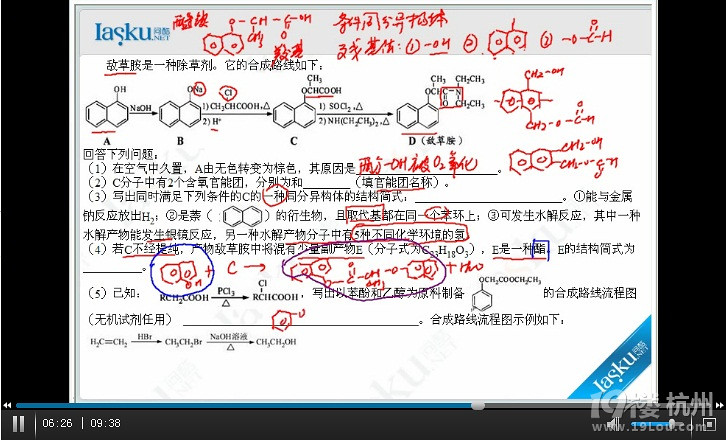 Iasku问酷.NET
醚键
O-CH-C-OH
CH3
O
羧基
条件同分异构体
支残基估:①-OH ② ③ -O-C-H
敌草胺是一种除草剂。它的合成路线如下:
OH
NaOH
ONa
Cl
1) CH3CHCOOH,△
2) H+
CH3
OCHCOOH
1) SOCl2,△
2) NH(CH2CH3)2,△
CH3
C2H5
C2H5
CH2-OH
CH2-O-C-H
A
B
C
D(敌草胺)
回答下列问题:
(1)在空气中久置,A由无色转变为棕色,其原因是 两个-OH被O2氧化 。
(2)C分子中有2个含氧官能团,分别为和 (填官能团名称)。
(3)写出同时满足下列条件的C的一种同分异构体的结构简式, 。①能与金属
钠反应放出H2;②是萘()的衍生物,且取代基都在同一个苯环上;③可发生水解反应,其中一种
水解产物能发生银镜反应,另一种水解产物分子中有5种不同化学环境的氢
(4)若C不经提纯,产物敌草胺中将混有少量副产物E(分子式为C23H18O3),E是一种酯,E的结构简式为
。
+ C → + H2O
(5)已知: RCH2COOH PCl3 △ Cl RCHCOOH,写出以苯酚和乙醇为原料制备 OCH2COOCH2CH3 的合成路线流程图
(无机试剂任用) 。合成路线流程图示例如下:
H2C=CH2 HBr CH3CH2Br NaOH溶液 △ CH3CH2OH
Iasku问酷.NET
06:26 | 09:38
19楼 杭州
www.19lou.com